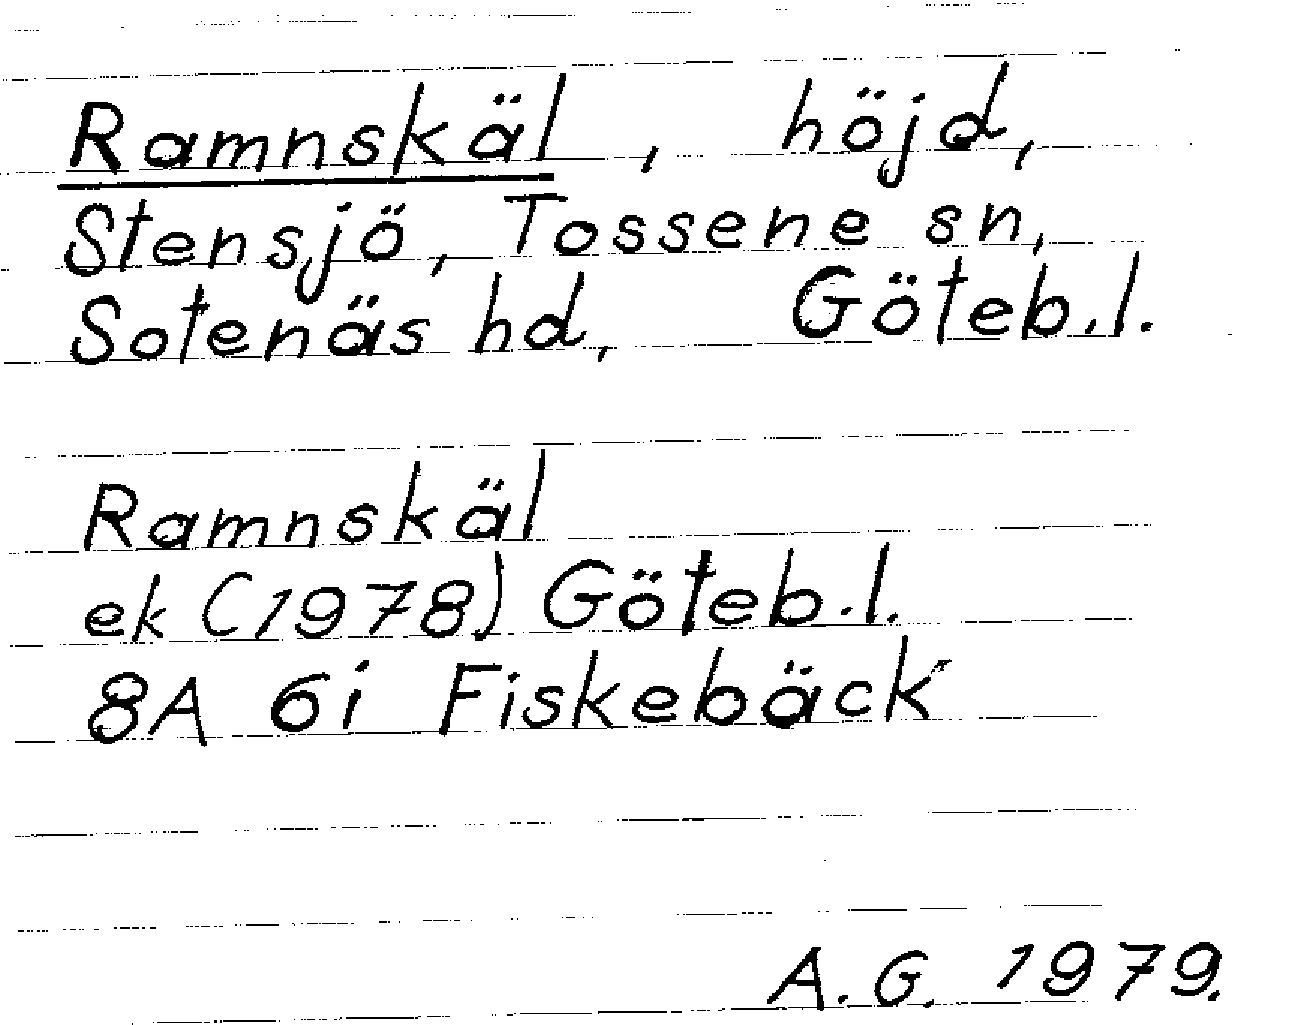 Ramnskäl, höjd,
Stensjö, Tossene sn,
Sotenäs hd, Göteb.l.
Ramnskäl
ek (1978) Göteb.l.
8A 6i Fiskebäck
A.G. 1979.